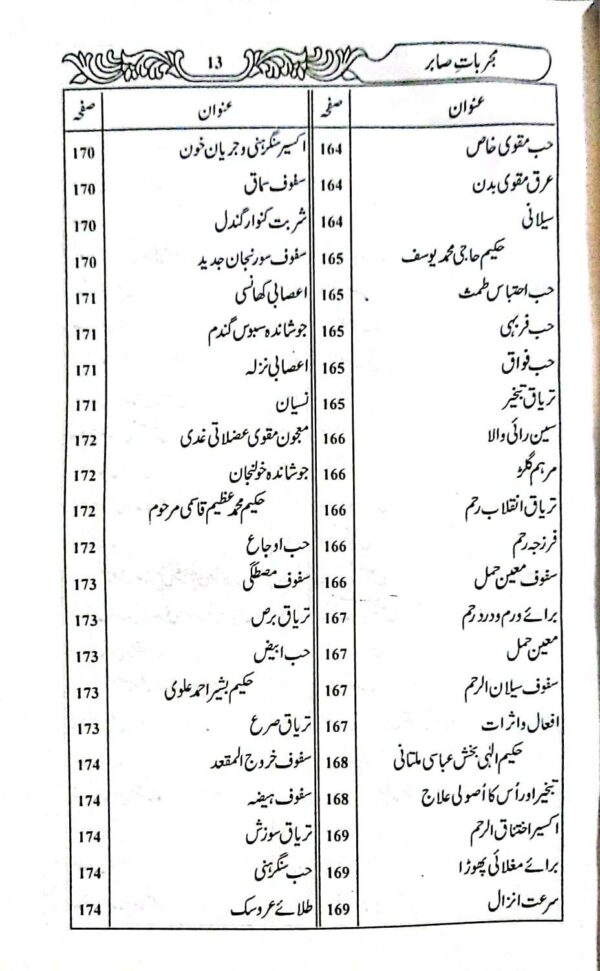 مجرباتِ صابر 13
عنوان صفحہ
حب مقوی خاص 164
عرق مقوی بدن 164
سیلانی 164
حکیم حاجی محمد یوسف 165
حب احتباس طمث 165
حب فربہی 165
حب فواق 165
تریاق تبخیر 165
سین رائی والا 166
مرہم گلہڑ 166
تریاق انقلاب رحم 166
فرزجہ رحم 166
سفوف معین حمل 166
برائے ورم و درد رحم 167
معین حمل 167
سفوف سیلان الرحم 167
افعال و اثرات 167
حکیم الٰہی بخش عباسی ملتانی 168
تبخیر اور اُس کا اُصولی علاج 168
اکسیر اختناق الرحم 169
برائے مغلائی پھوڑا 169
سرعت انزال 169
عنوان صفحہ
اکسیر سنگرہنی و جریان خون 170
سفوف سماق 170
شربت کنوار گندل 170
سفوف سورنجان جدید 170
اعصابی کھانسی 171
جوشاندہ سبوس گندم 171
اعصابی نزلہ 171
نسیان 171
معجون مقوی عضلاتی غدی 172
جوشاندہ خولنجان 172
حکیم محمد عظیم قاسمی مرحوم 172
حب اوجاع 172
سفوف مصطگی 173
تریاق برص 173
حب ابیض 173
حکیم بشیر احمد علوی 173
تریاق صرع 173
سفوف خروج المقعد 174
سفوف ہیضہ 174
تریاق سوزش 174
حب سنگرہنی 174
طلائے عروسک 174